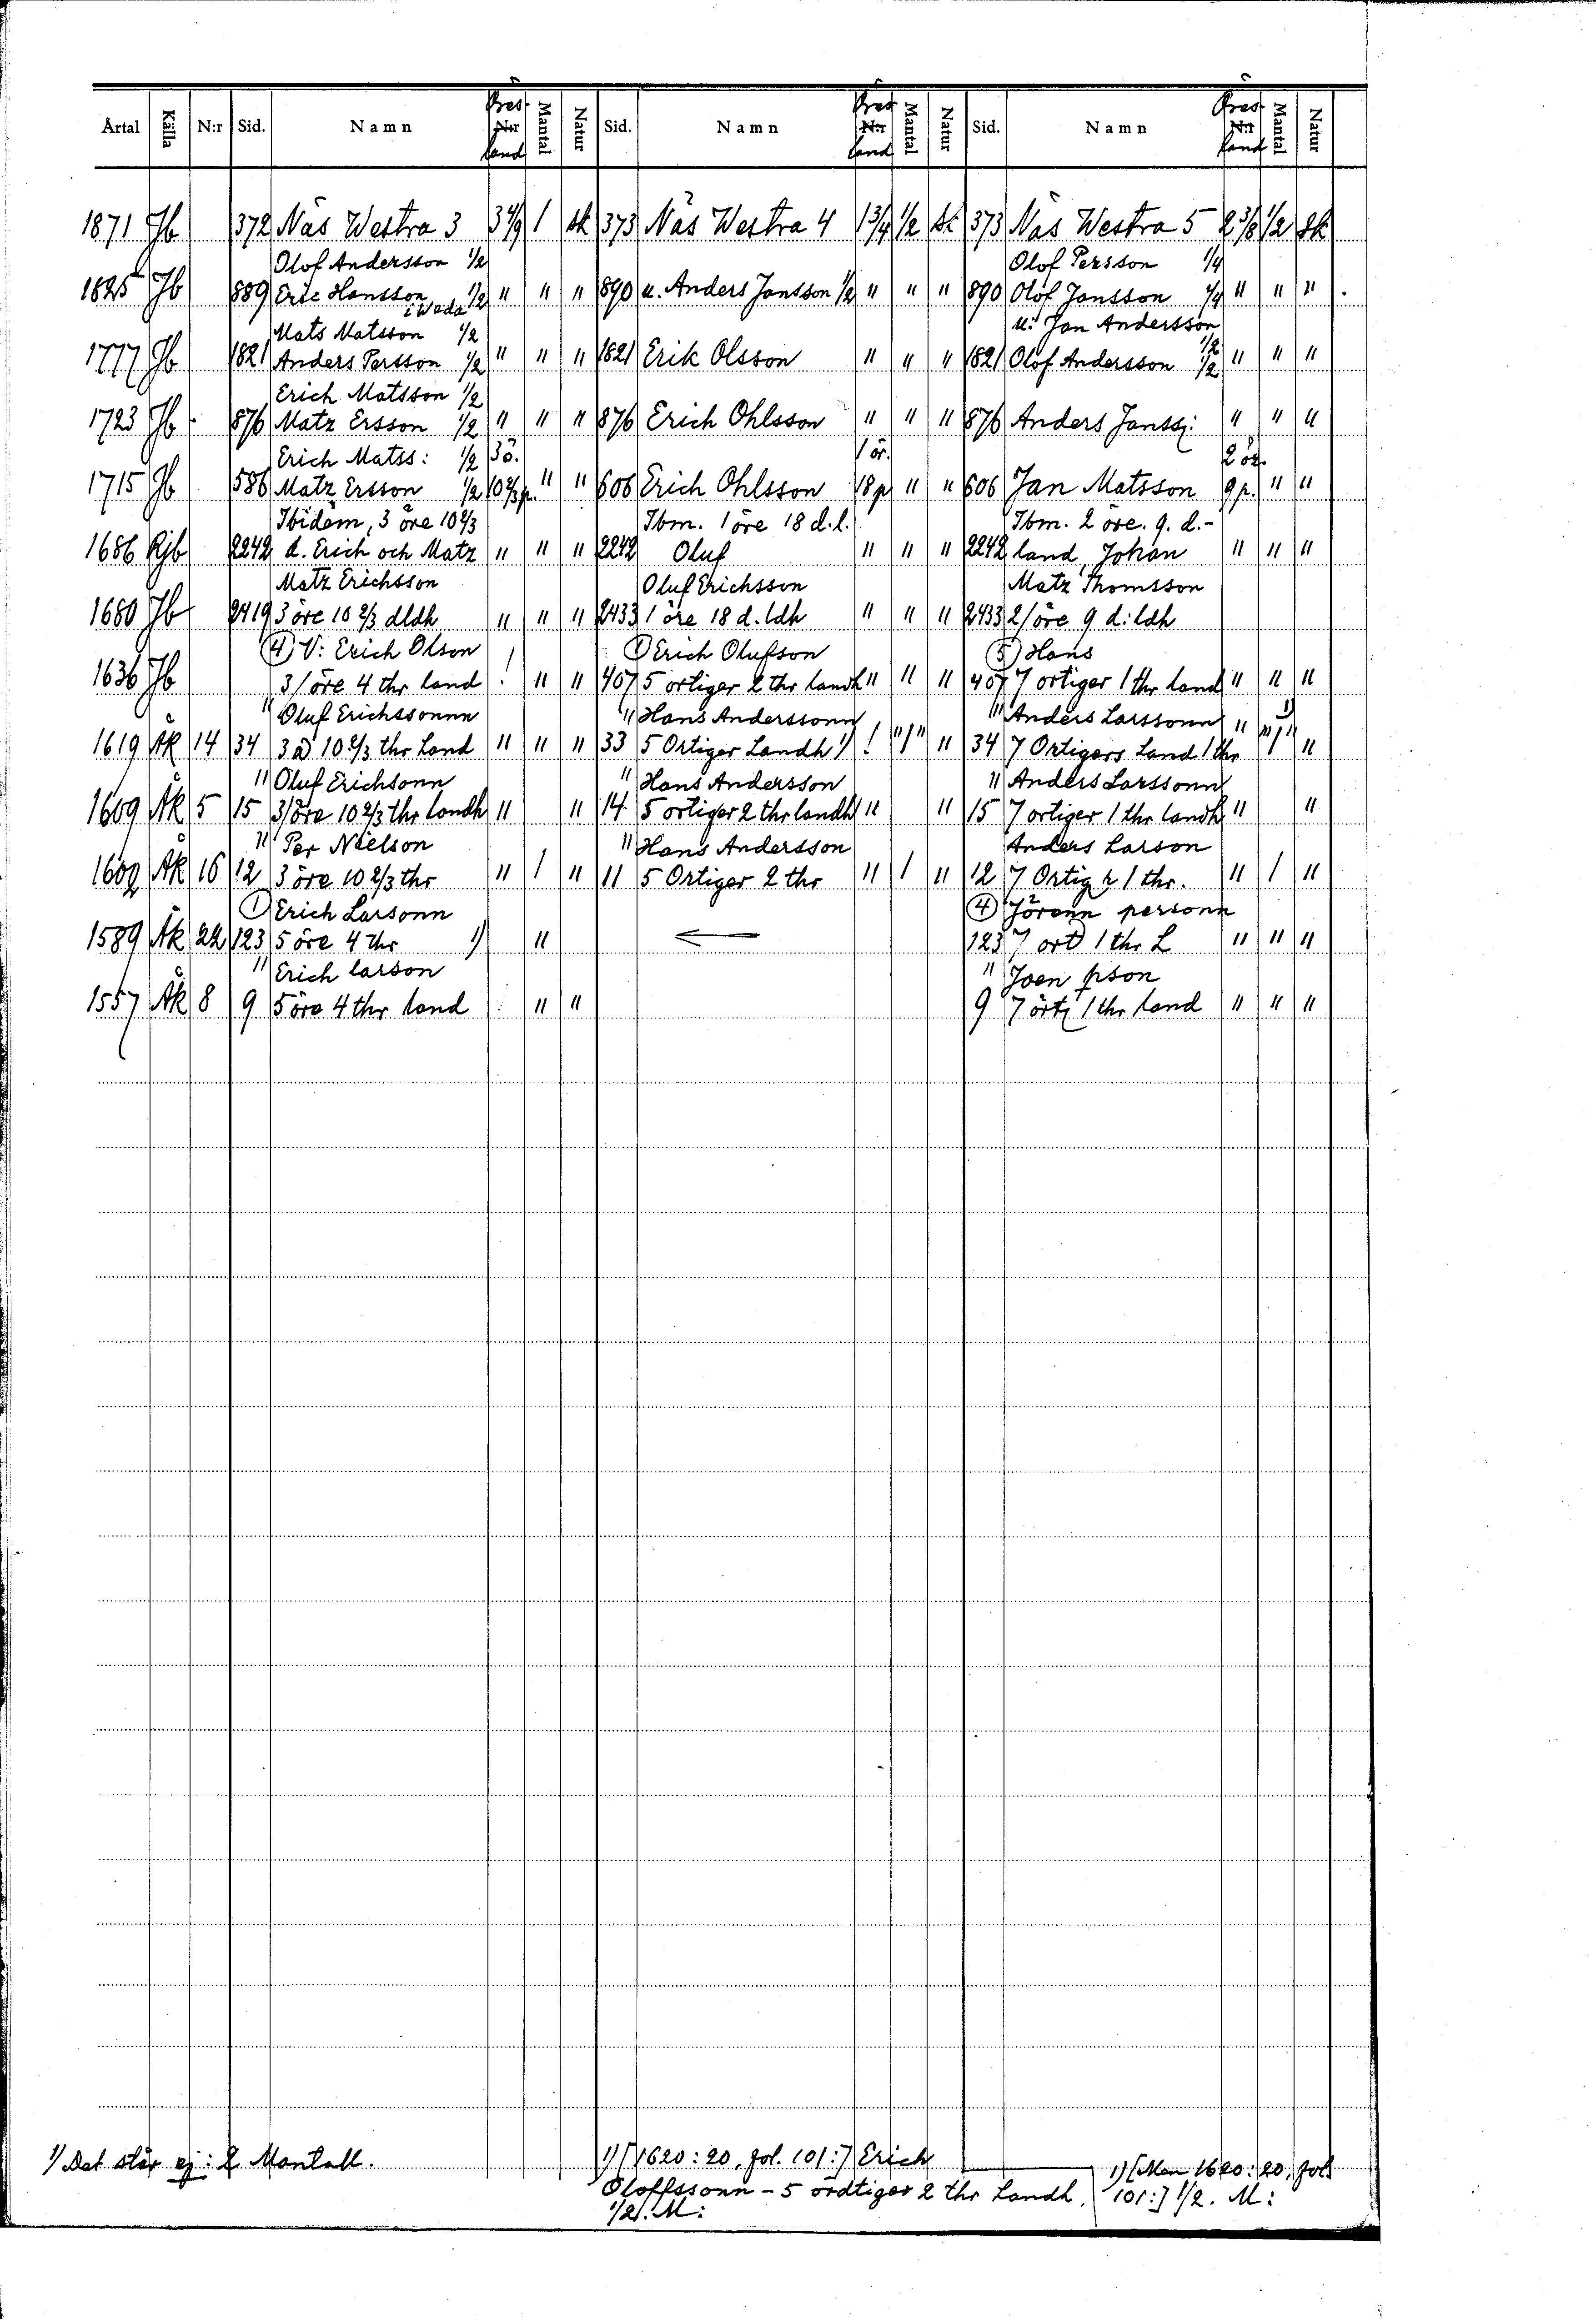 Öres Öres Öres
Årtal Källa N:r Sid. Namn N:r Mantal Natur Sid. Namn N:r Mantal Natur Sid. Namn N:r Mantal Natur
land land land
1871 Jb 372 Näs Westra 3 3 4/9 1 sk 373 Näs Westra 4 1 3/4 1/2 sk 373 Näs Westra 5 2 3/8 1/2 sk
Olof Andersson 1/2 Olof Persson 1/4
1825 Jb 889 Eric Hansson 1/2 " " " 890 u. Anders Jansson 1/2 " " " 890 Olof Jansson 1/4 " " "
i Wada
Mats Matsson 1/2 u: Jan Andersson 1/2
1777 Jb 1821 Anders Persson 1/2 " " " 1821 Erik Olsson " " " 1821 Olof Andersson 1/2 " " "
Erich Matsson 1/2
1723 Jb 876 Matz Ersson 1/2 " " " 876 Erich Ohlsson " " " 876 Anders Janss: " " "
Erich Matss: 1/2 3ö. 1 ör. 2 ör.
1715 Jb 586 Matz Ersson 1/2 10 2/3 p. " " 606 Erich Ohlsson 18 p " " 606 Jan Matsson 9 p. " "
Ibidem, 3 öre 10 2/3 Ibm. 1 öre 18 d.l. Ibm. 2 öre. 9. d.-
1686 Rjb 2242 d. Erich och Matz " " " 2242 Oluf " " " 2242 land, Johan " " "
Matz Erichsson Oluf Erichsson Matz Thomsson
1680 Jb 2419 3 öre 10 2/3 dldh " " " 2433 1 öre 18 d. ldh " " " 2433 2/öre 9 d: ldh
4) V: Erich Olson 1) Erich Olufson 5) Hans
1636 Jb 3/öre 4 thr land ! " " 407 5 ortiger 2 thr landh " " " 407 7 ortiger 1 thr land " " "
" Oluf Erichssonnn " Hans Anderssonn " Anders Larssonn " 1)
1619 Åk 14 34 3 ö 10 2/3 thr Land " " " 33 5 Ortiger Landh 1) ! "1" " 34 7 Ortigers Land 1 thr "1" "
" Oluf Erichsonn " Hans Andersson " Anders Larssonn
1609 Åk 5 15 3/öre 10 2/3 thr landh " " 14 5 ortiger 2 thr landh " " 15 7 ortiger 1 thr landh " "
" Per Nielson " Hans Andersson Anders Larson
1602 Åk 16 12 3 öre 10 2/3 thr " 1 " 11 5 Ortiger 2 thr " 1 " 12 7 Ortigr 1 thr. " 1 "
1) Erich Larsonn 4) Jöronn personn
1589 Åk 22 123 5 öre 4 thr 1) " ← 123 7 ort 1 thr L " " "
" Erich larson " Joen pson
1557 Åk 8 9 5 öre 4 thr land " " 9 7 ört 1 thr land " " "
1) Det står ej: 2 Mantall. 1) [1620:20, fol. 101:] Erich 1) [Men 1620:20, fol.
Oloffssonn - 5 ördtiger 2 thr Landh. 101:] 1/2. M:
1/2. M: